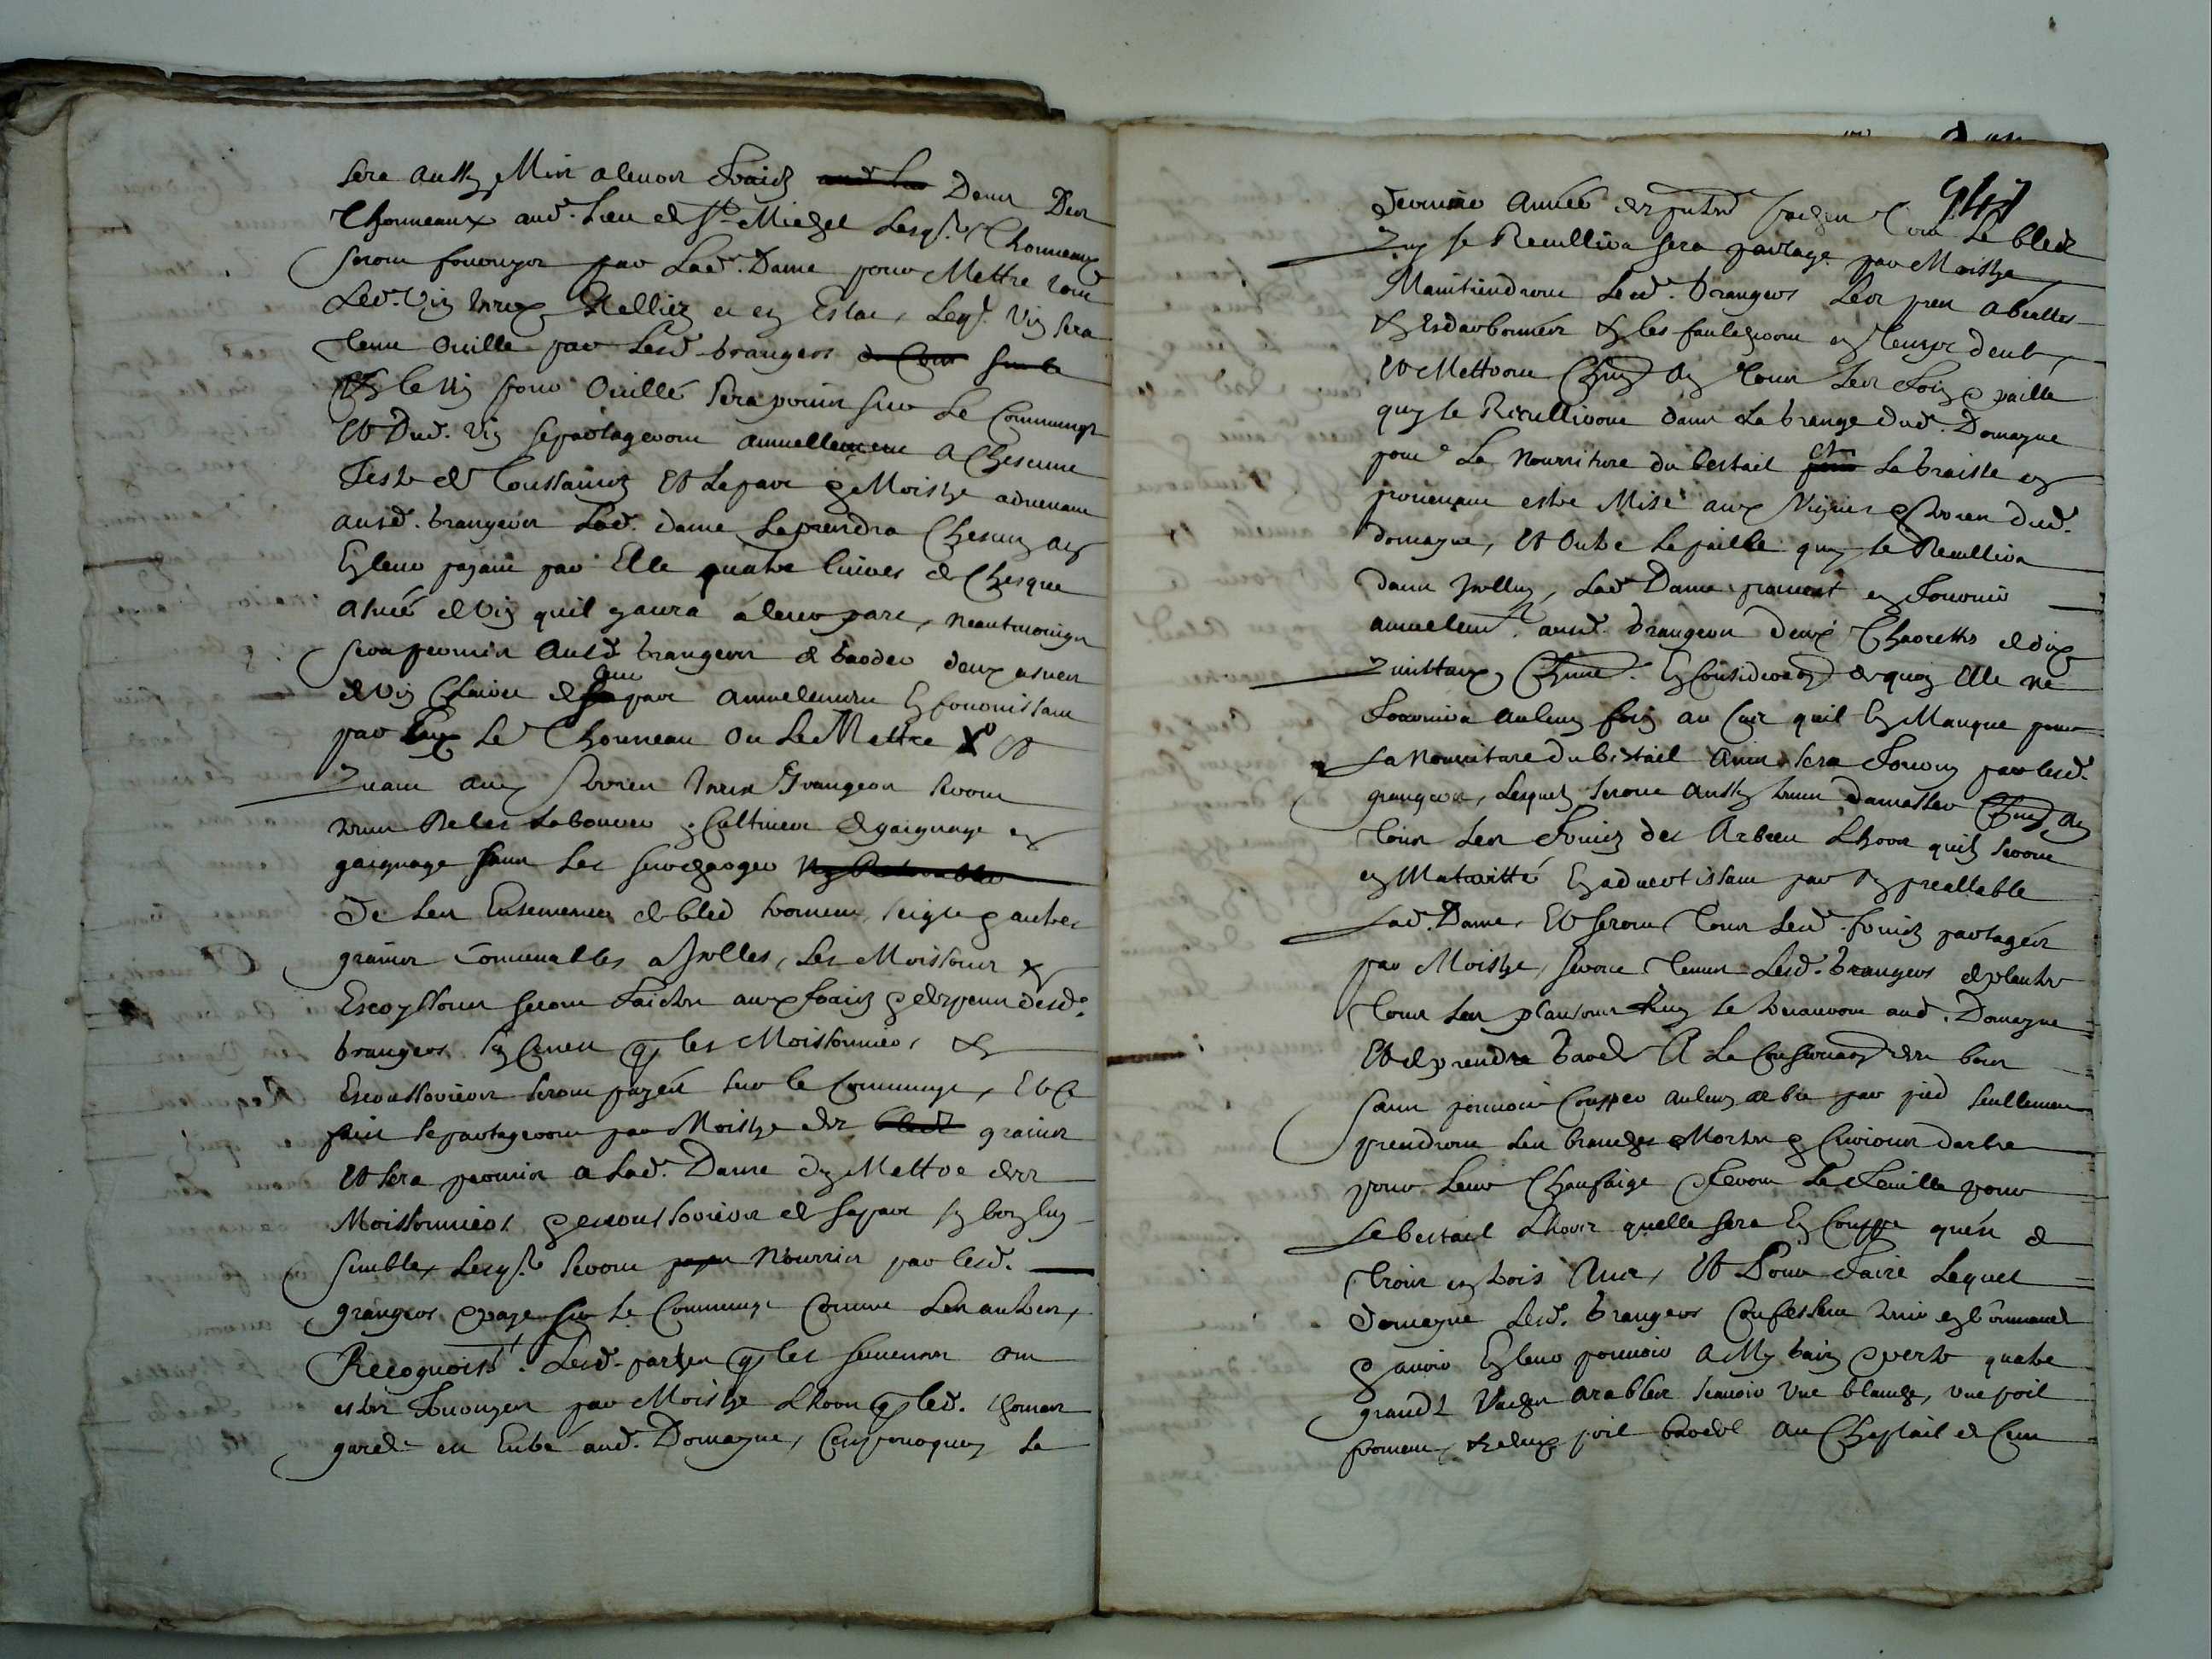 sera aussy Mis a leurs fraictz aud. lieu Dans Des
Thonneaux aud. Lieu de St Michel Lesqls Thonneaux
seront fournys par Lad. Dame pour Mettre tout
Led. Vin Relliez et en Estat, Leql Vin sera
tenu Ouille par Lesd. Grangers
le vin pour Ouillé sera prins sur Le Commung
Et Dud. Vin se partageront annuellement a Chescune
Feste de Toussainctz Et La part & Moistye advenant
ausd. Grangers Lad. dame La prendra Chescung an
En leur payant par Elle quatre livres de Chesque
Asnée de Vin quil y aura à leur part, neantmoings
sera permis Ausd. Grangers de Garder deux asnees
de Vin Clairet de leur part annuelement En fournissant
par Eux Le Thonneau Ou Le Mettre Et
Quant aux Terres Iceux Grangers seront
tenus De les Labourer & Cultiver de gaignage en
gaignage sans Les surcharger
De Les Ensemencer de bled froment, seigle & autres
grains Convenables a Icelles, Les Moissons &
Escoyssons seront Faictes aux fraictz & despens desd.
Grangers, sy Ce nest q les Moissonniers &
Escoussoriers seront payés sur le Commung, Et Ce
faict se partageront par Moistye des bledz grains
Et sera permis a Lad. Dame dy Mettre des
Moissonniers & escoussoriers de sa part sy bon luy
semble, Lesqls seront payes Nourris par lesd.
grangers & payes sur le Commung Comme Les autres,
Recognoisst Lesd. parties q les semences ont
estes Fournyes par Moistye Lhors q led. Thomas
garde est Entré aud. Domayne, Cest pourquoy La
947
derniere Année des putes Tout Le bledz
quy se Recullira sera partagé par Moistye
Maintiendront Lesd. Grangers Les prez abealles
& Esdarbonnés & les faulcheront en temps deub,
Et Mettront Chung An Tous Les Foin & paille
quy se Reculliront dans La Grange dud. Domayne
pour La Nourriture du bestail et La Graisse en
provenant estre Mise aux Vignes & Terres dud.
domayne, Et Outre La paille quy se Recullira
dans Icelluy, Lad. Dame promest en Fournir
annuelemt ausd. Grangers deux Charettes de dix
quintaux Chune. En Consideraon de quoy Elle ne
Fournira Aulcung foin au Cas quil En Manque pour
La Nourriture du bestail Ains sera Fourny par lesd.
grangers, Lesquels seront Aussy tenus damasser Chung An
Tous Les Fruictz des Arbres Lhors quilz seront
en Maturitté En advertissant par Un preallable
Lad. Dame, Et seront Tous Lesd. fruictz partagés
par Moistye, seront tenus Lesd. Grangers de planter
Tous Les plansons quy se trouveront aud. Domayne
Et de prendre Garde A La Conservaon des bois
sans pouvoir Coupper aulcung arbre par pied seullement
prendront Les branches Mortes & Cuvions darbre
pour Leur Chaufaige & feront La Feuille pour
Le bestail Lhors quelle sera En Couppe quest de
Trois en trois Ans, Et Pour Faire Lequel
domayne Lesd. Grangers Confessent tenir en Commande
& avoir En leur pouvoir a My Gain & perte quatre
grands Vaches arables scavoir Une blanche, une poil
froment, & deux poil bardel Au Cheptail de Cent